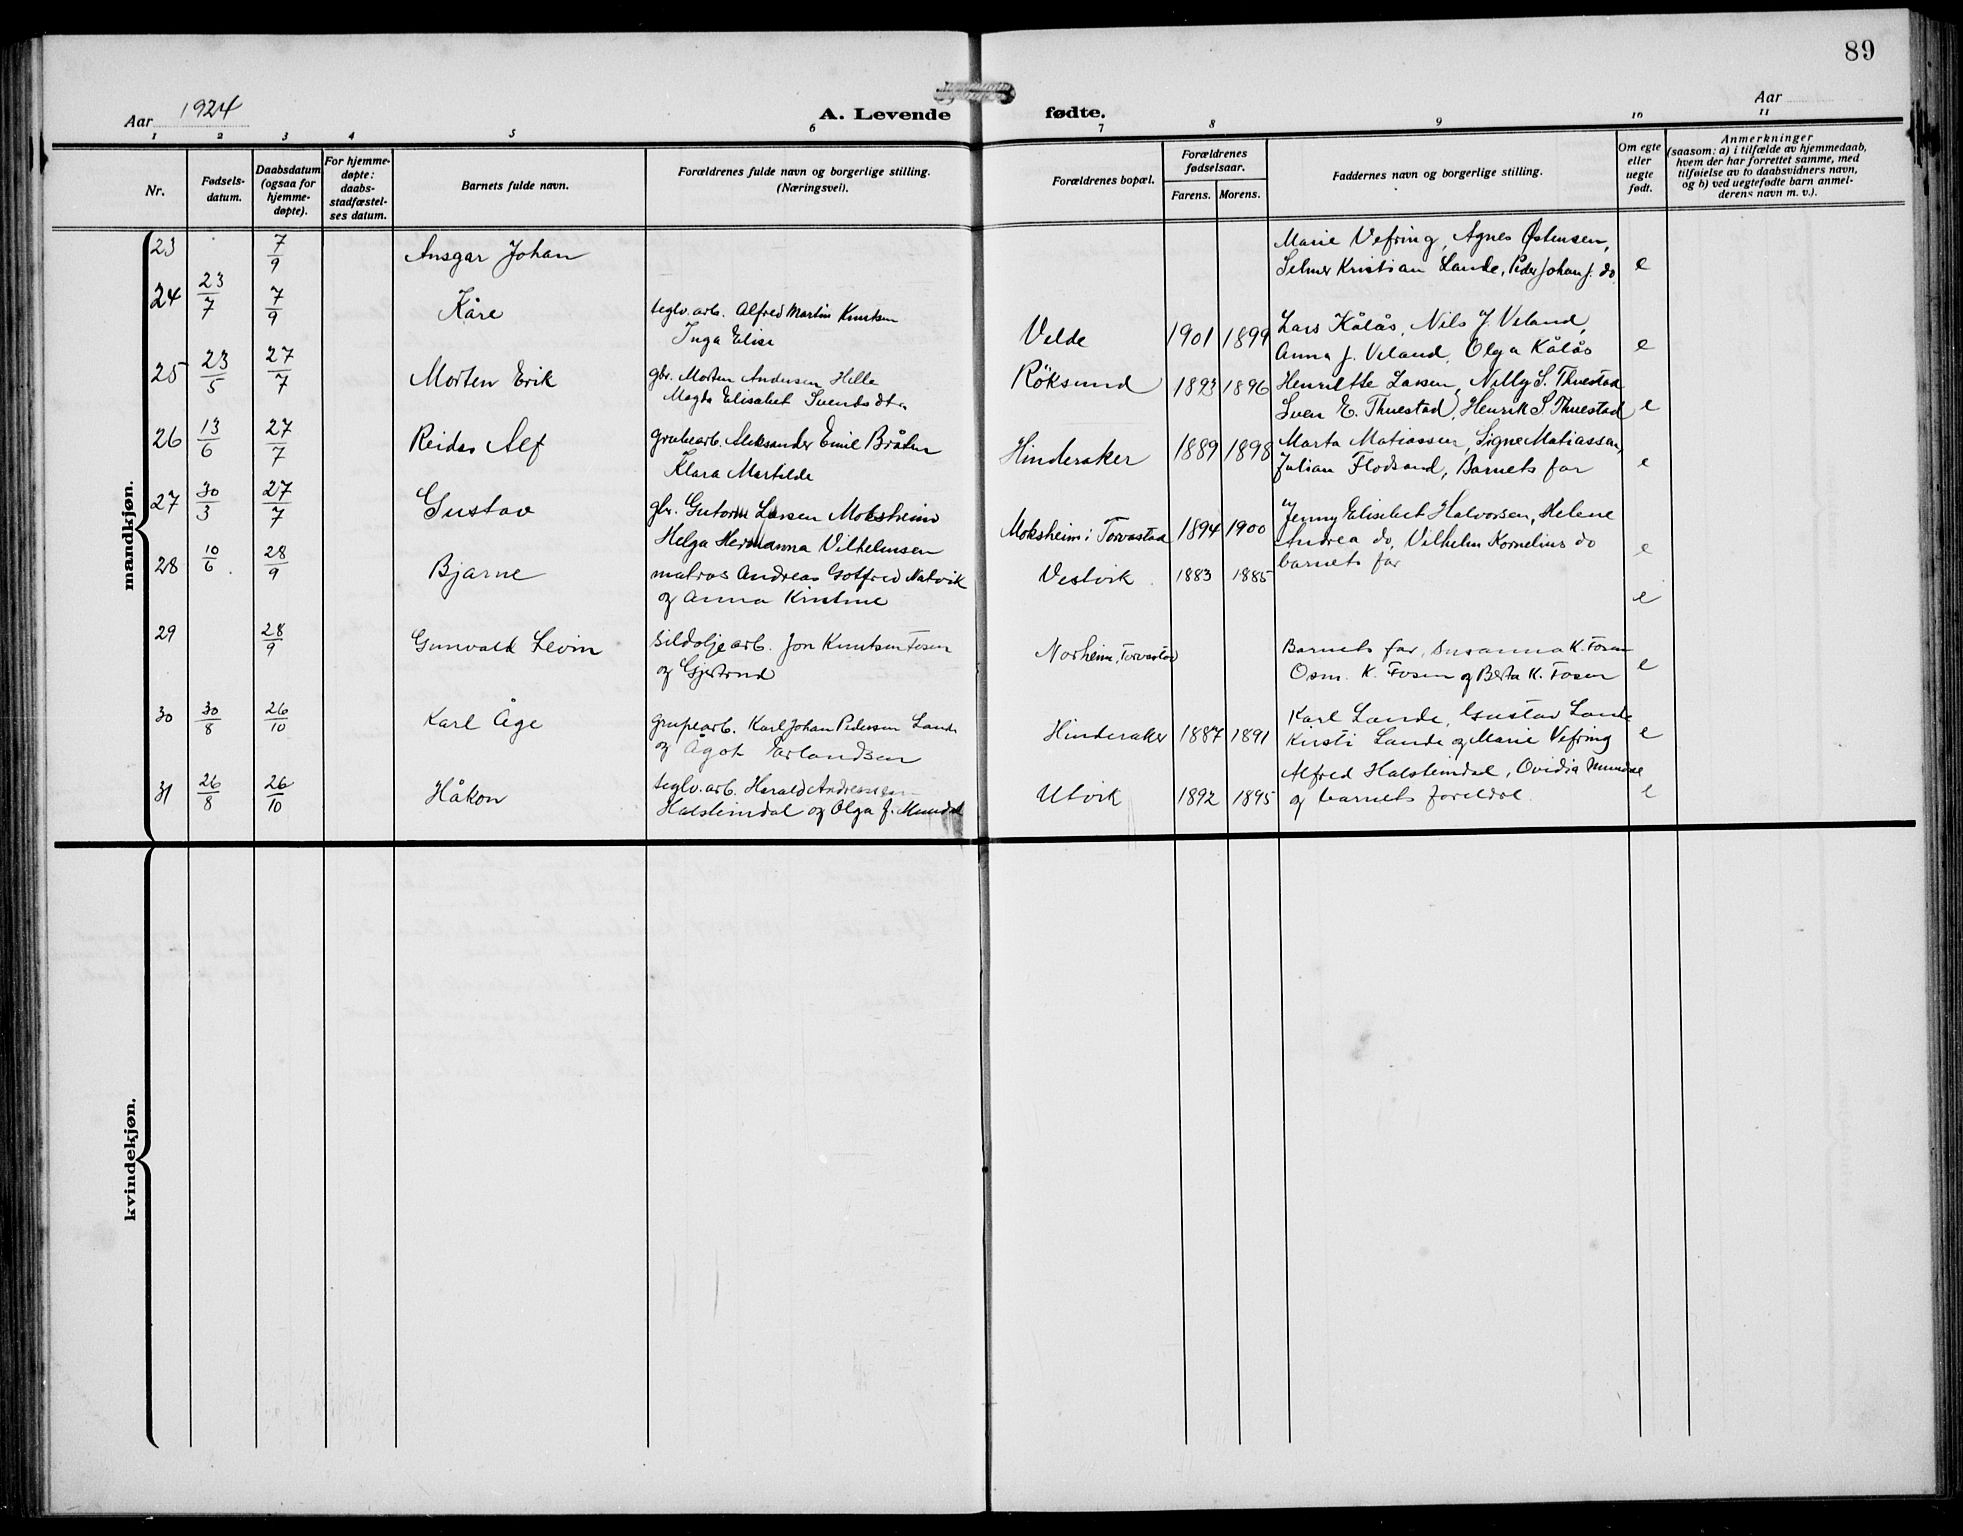 89
Aar 1924
A. Levende fødte.
Aar
1 2 3 4 5 6 7 8 9 10 11
Nr.
Fødsels-
datum.
Daabsdatum
(ogsaa for
hjemme-
døpte).
For hjemme-
døpte:
daabs-
stadfæstel-
ses datum.
Barnets fulde navn.
Forældrenes fulde navn og borgerlige stilling.
(Næringsvei).
Forældrenes bopæl.
Forældrenes
fødselsaar.
Farens. Morens.
Faddernes navn og borgerlige stilling.
Om egte
eller
uegte
født.
Anmerkninger
(saasom: a) i tilfælde av hjemmedaab,
hvem der har forrettet samme, med
tilføielse av to daabsvidners navn,
og b) ved uegtefødte barn anmel-
derens navn m. v.).
mandkjøn.
23 7/9 Ansgar Johan
Marie Vefring, Agnes Østensen,
Selmer Kristian Lande, Peder Johan J. do. e
24 23/7 7/9 Kåre
teglv. arb. Alfred Martin Knutsen
Inga Elise
Velde 1901 1899
Lars Kålås, Nils J. Veland,
Anna J. Veland, Olga Kålås e
25 23/5 27/7 Morten Erik
gbr. Morten Andersen Helle
Magda Elisabet Svendsdtr.
Röksund 1893 1896
Henriette Larsen, Nelly S. Thuestad
Sven E. Thuestad, Henrik S. Thuestad e
26 13/6 27/7 Reidar Alf
grubearb. Aleksander Emil Bråten
Klara Martilde
Hinderaker 1889 1898
Marta Matiassen, Signe Matiassen,
Julian Flodsand, Barnets far e
27 30/3 27/7 Gustav
gbr. Gutorm Larsen Moksheim
Helga Hermanna Vilhelmsen
Moksheim i Torvastad 1894 1900
Jenny Elisabet Halvorsen, Helene
Andrea do, Vilhelm Kornelius do
barnets far e
28 10/6 28/9 Bjarne
matros Andreas Gotfred Natvik
og Anna Kristine
Vestvik 1883 1885 e
29 28/9 Gunvald Levin
sildoljearb. Jon Knutsen Fosen
og Gjertrud
Norheim, Torvastad
Barnets far, Susanna K. Fosen
Osm. K. Fosen og Berta K. Fosen e
30 30/8 26/10 Karl Åge
grubearb. Karl Johan Pedersen Lande
og Ågot Erlandsen
Hinderaker 1887 1891
Karl Lande, Gustav Lande
Kirsti Lande og Marie Vefring e
31 26/8 26/10 Håkon
teglv. arb. Harald Andreassen
Halsteindal og Olga J. Mundal
Utvik 1892 1895
Alfred Halsteindal, Ovidia Mundal
og barnets foreldre. e
kvindekjøn.